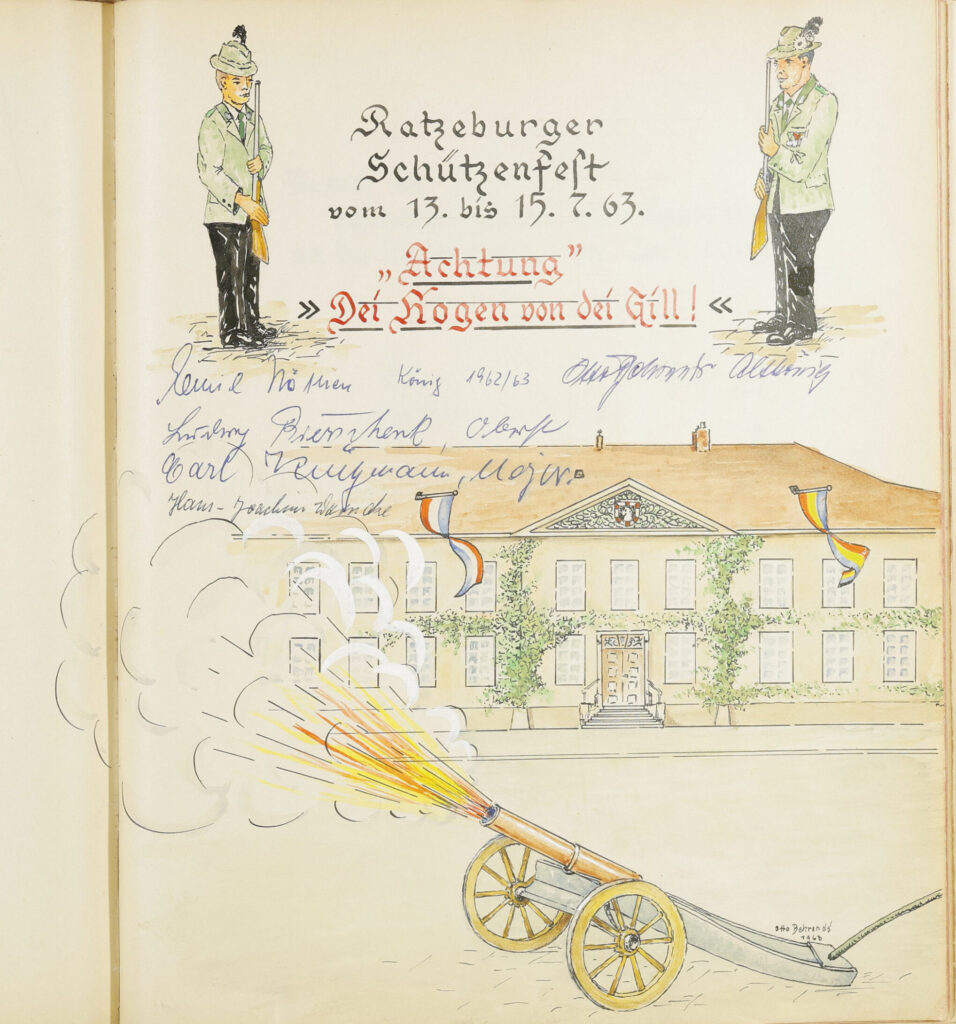 Ratzeburger
Schützenfest
vom 13. bis 15. 7. 63.
„Achtung”
» Dei Kogen von dei Gill! «
Nötnen König 1962/63
Ludwig Bierschenk, Oberst
Carl Klugmann, Major.
Hans-Joachim
Otto Behrends
1963